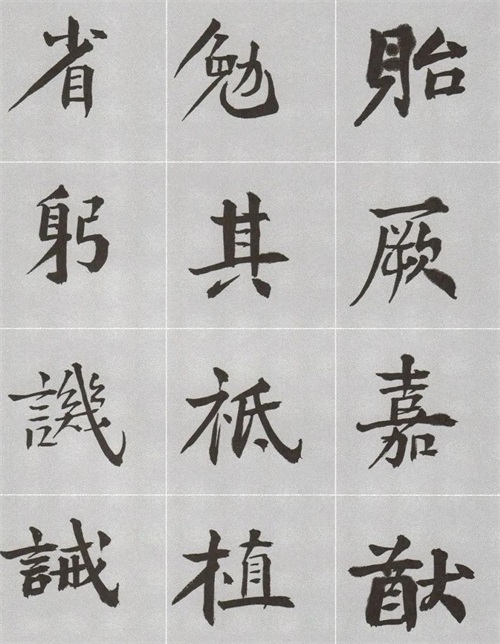 貽厥嘉猷
勉其祗植
省躬譏誡